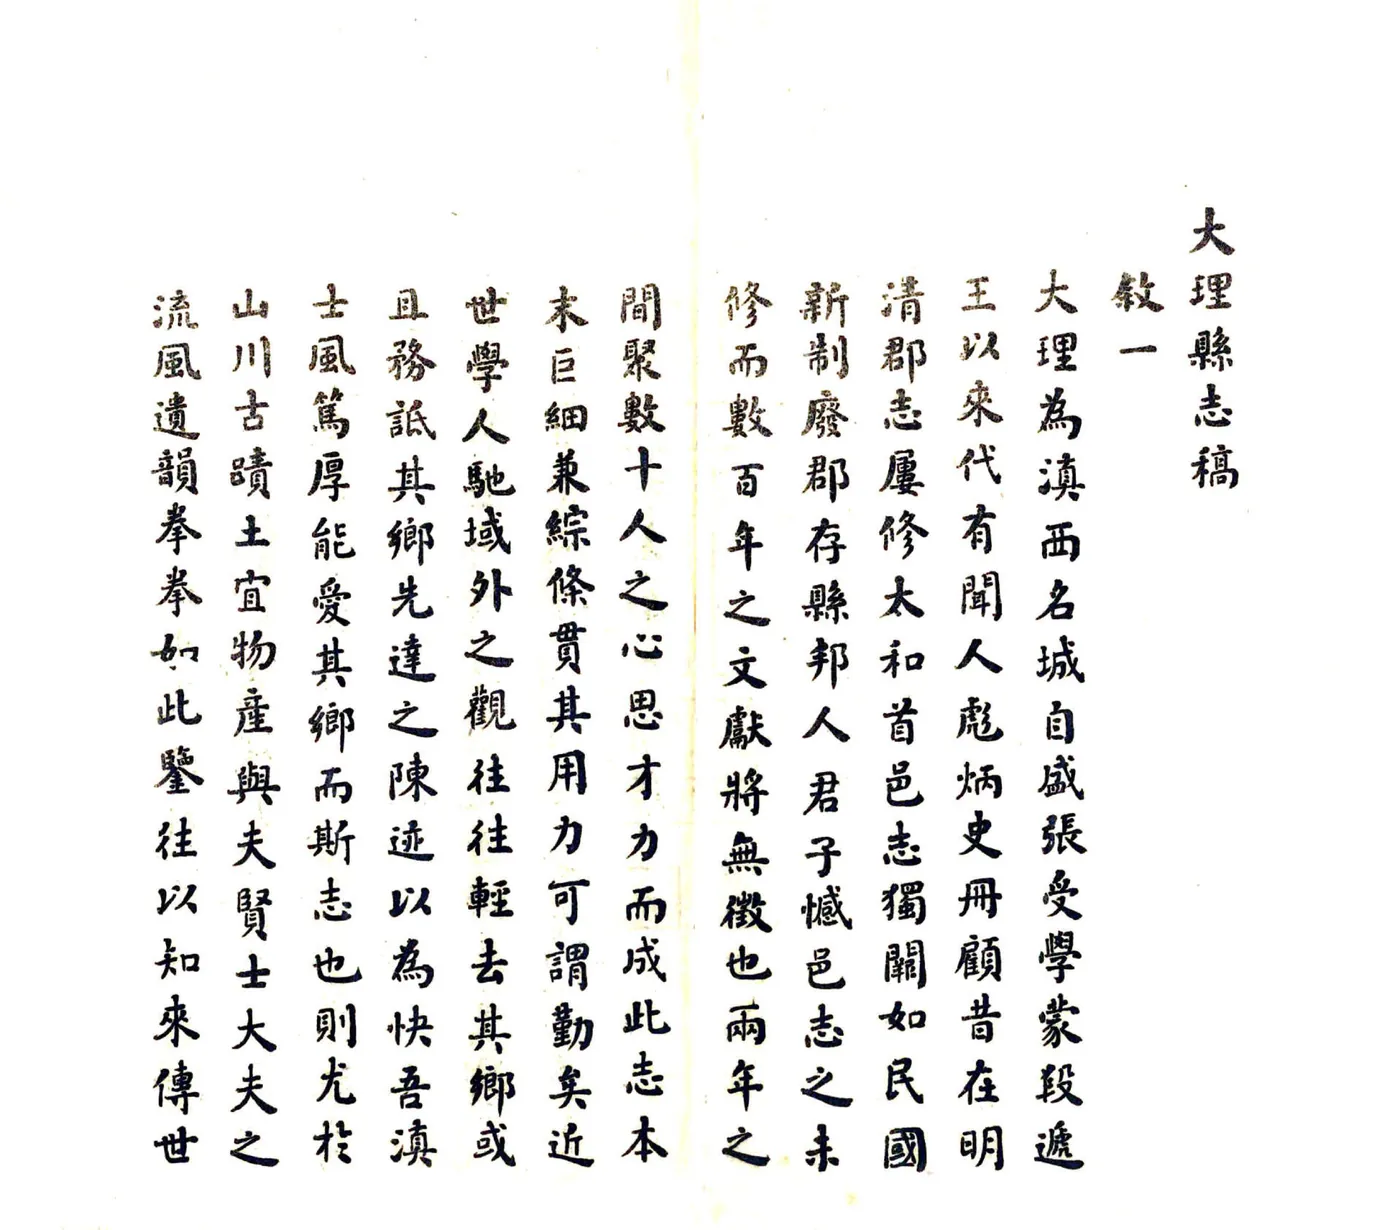 大理縣志稿
敘一
大理為滇西名城自盛張受學蒙段遞
王以來代有聞人彪炳史冊顧昔在明
清郡志屢修太和首邑志獨闕如民國
新制廢郡存縣邦人君子憾邑志之未
修而數百年之文獻將無徵也兩年之
間聚數十人之心思才力而成此志本
末巨細兼綜條貫其用力可謂勤矣近
世學人馳域外之觀往往輕去其鄉或
且務詆其鄉先達之陳迹以為快吾滇
士風篤厚能愛其鄉而斯志也則尤於
山川古蹟土宜物產與夫賢士大夫之
流風遺韻拳拳如此鑒往以知來傳世